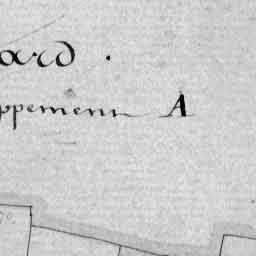 ard.
ppement A